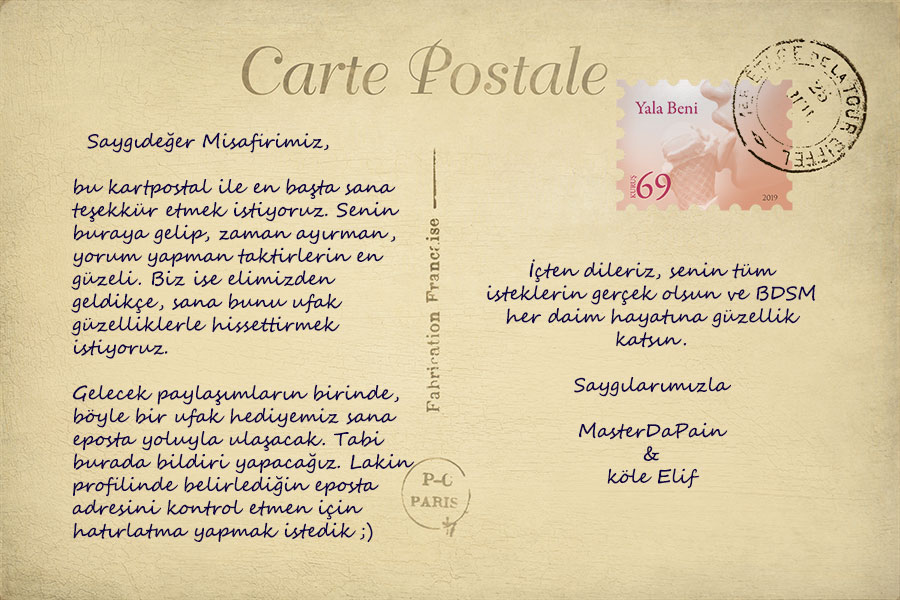 Carte Postale
Saygıdeğer Misafirimiz,
bu kartpostal ile en başta sana
teşekkür etmek istiyoruz. Senin
buraya gelip, zaman ayırman,
yorum yapman taktirlerin en
güzeli. Biz ise elimizden
geldikçe, sana bunu ufak
güzelliklerle hissettirmek
istiyoruz.
Gelecek paylaşımların birinde,
böyle bir ufak hediyemiz sana
eposta yoluyla ulaşacak. Tabi
burada bildiri yapacağız. Lakin
profilinde belirlediğin eposta
adresini kontrol etmen için
hatırlatma yapmak istedik ;)
Fabrication Française
P-C
PARIS
Yala Beni
KURUŞ
69
2019
DE LA TOUR EIFFEL
25
İçten dileriz, senin tüm
isteklerin gerçek olsun ve BDSM
her daim hayatına güzellik
katsın.
Saygılarımızla
MasterDaPain
&
köle Elif